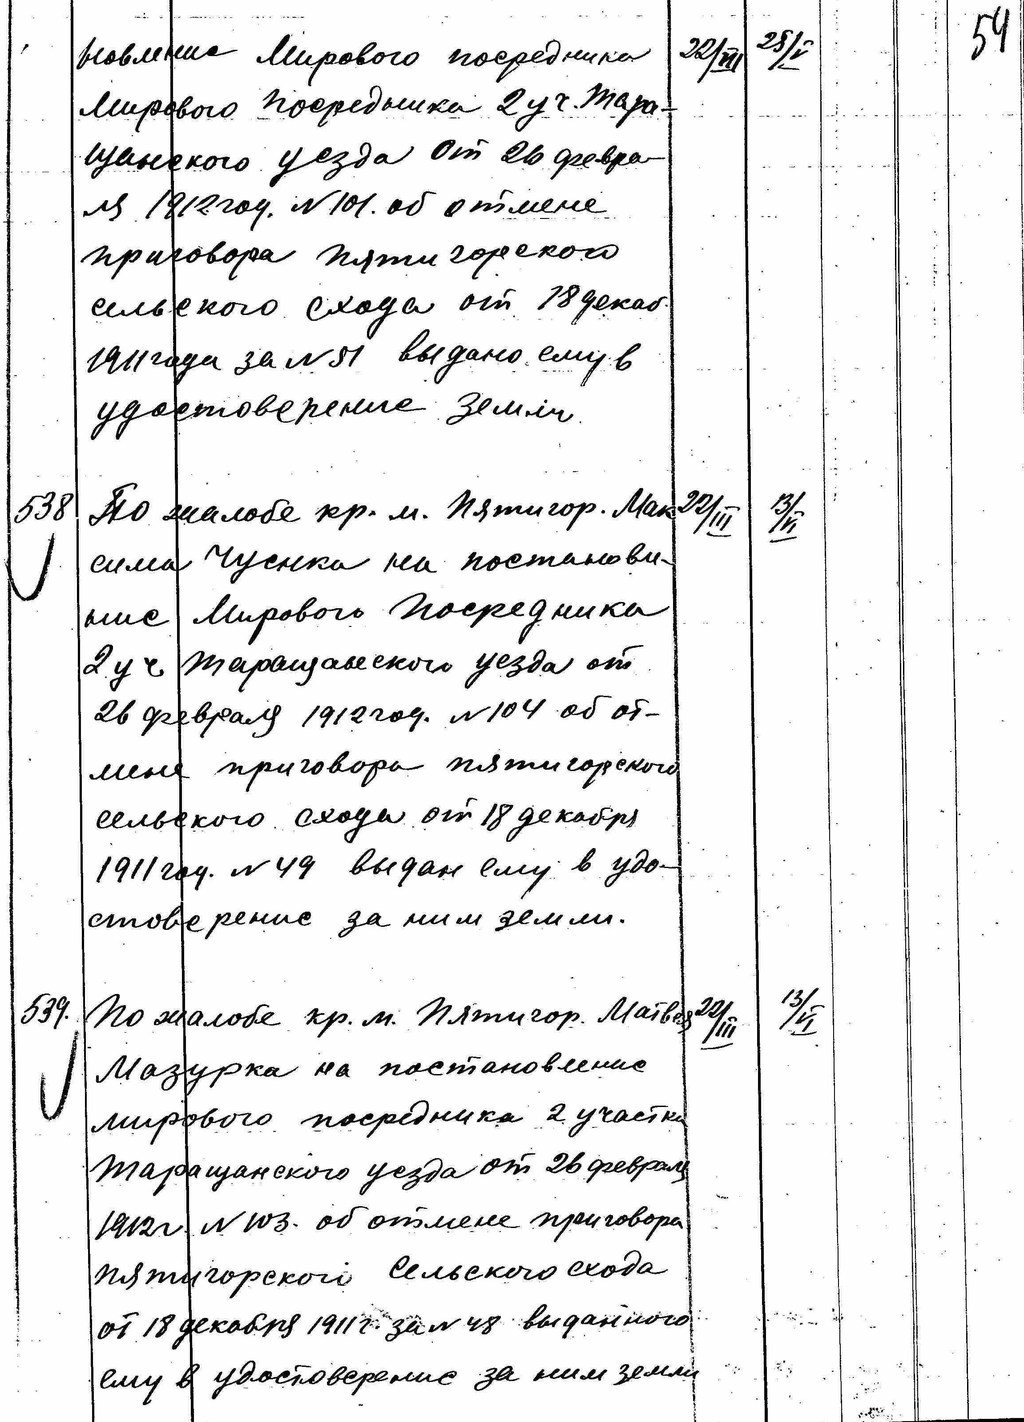 54
новление Мирового посредника 22/III 25/V
Мирового Посредника 2 уч. Тара-
щанского уезда от 26 февра-
ля 1912 год. N 101. об отмене
приговора пятигорского
сельского схода от 18 декаб.
1911 года за N 51 выдано ему в
удостоверение земли
538 По жалобе кр. м. Пятигор. Мак 22/III 13/VI
сима Чуенка на постанови-
ние Мирового Посредника
2 уч Таращанского уезда от
26 февраля 1912 год. N 104 об от-
мене приговора пятигорского
сельского схода от 18 декабря
1911 год. N 49 выдан ему в удо-
стоверение за ним земли.
539. По жалобе кр. м. Пятигор. Матвея 22/III 13/VI
Мазурка на постановление
мирового посредника 2 участка
Таращанского уезда от 26 февраля
1912 г N 103. об отмене приговора
пятигорского Сельского схода
от 18 декабря 1911 г. за N 48 выданного
ему в удостоверение за ним земли